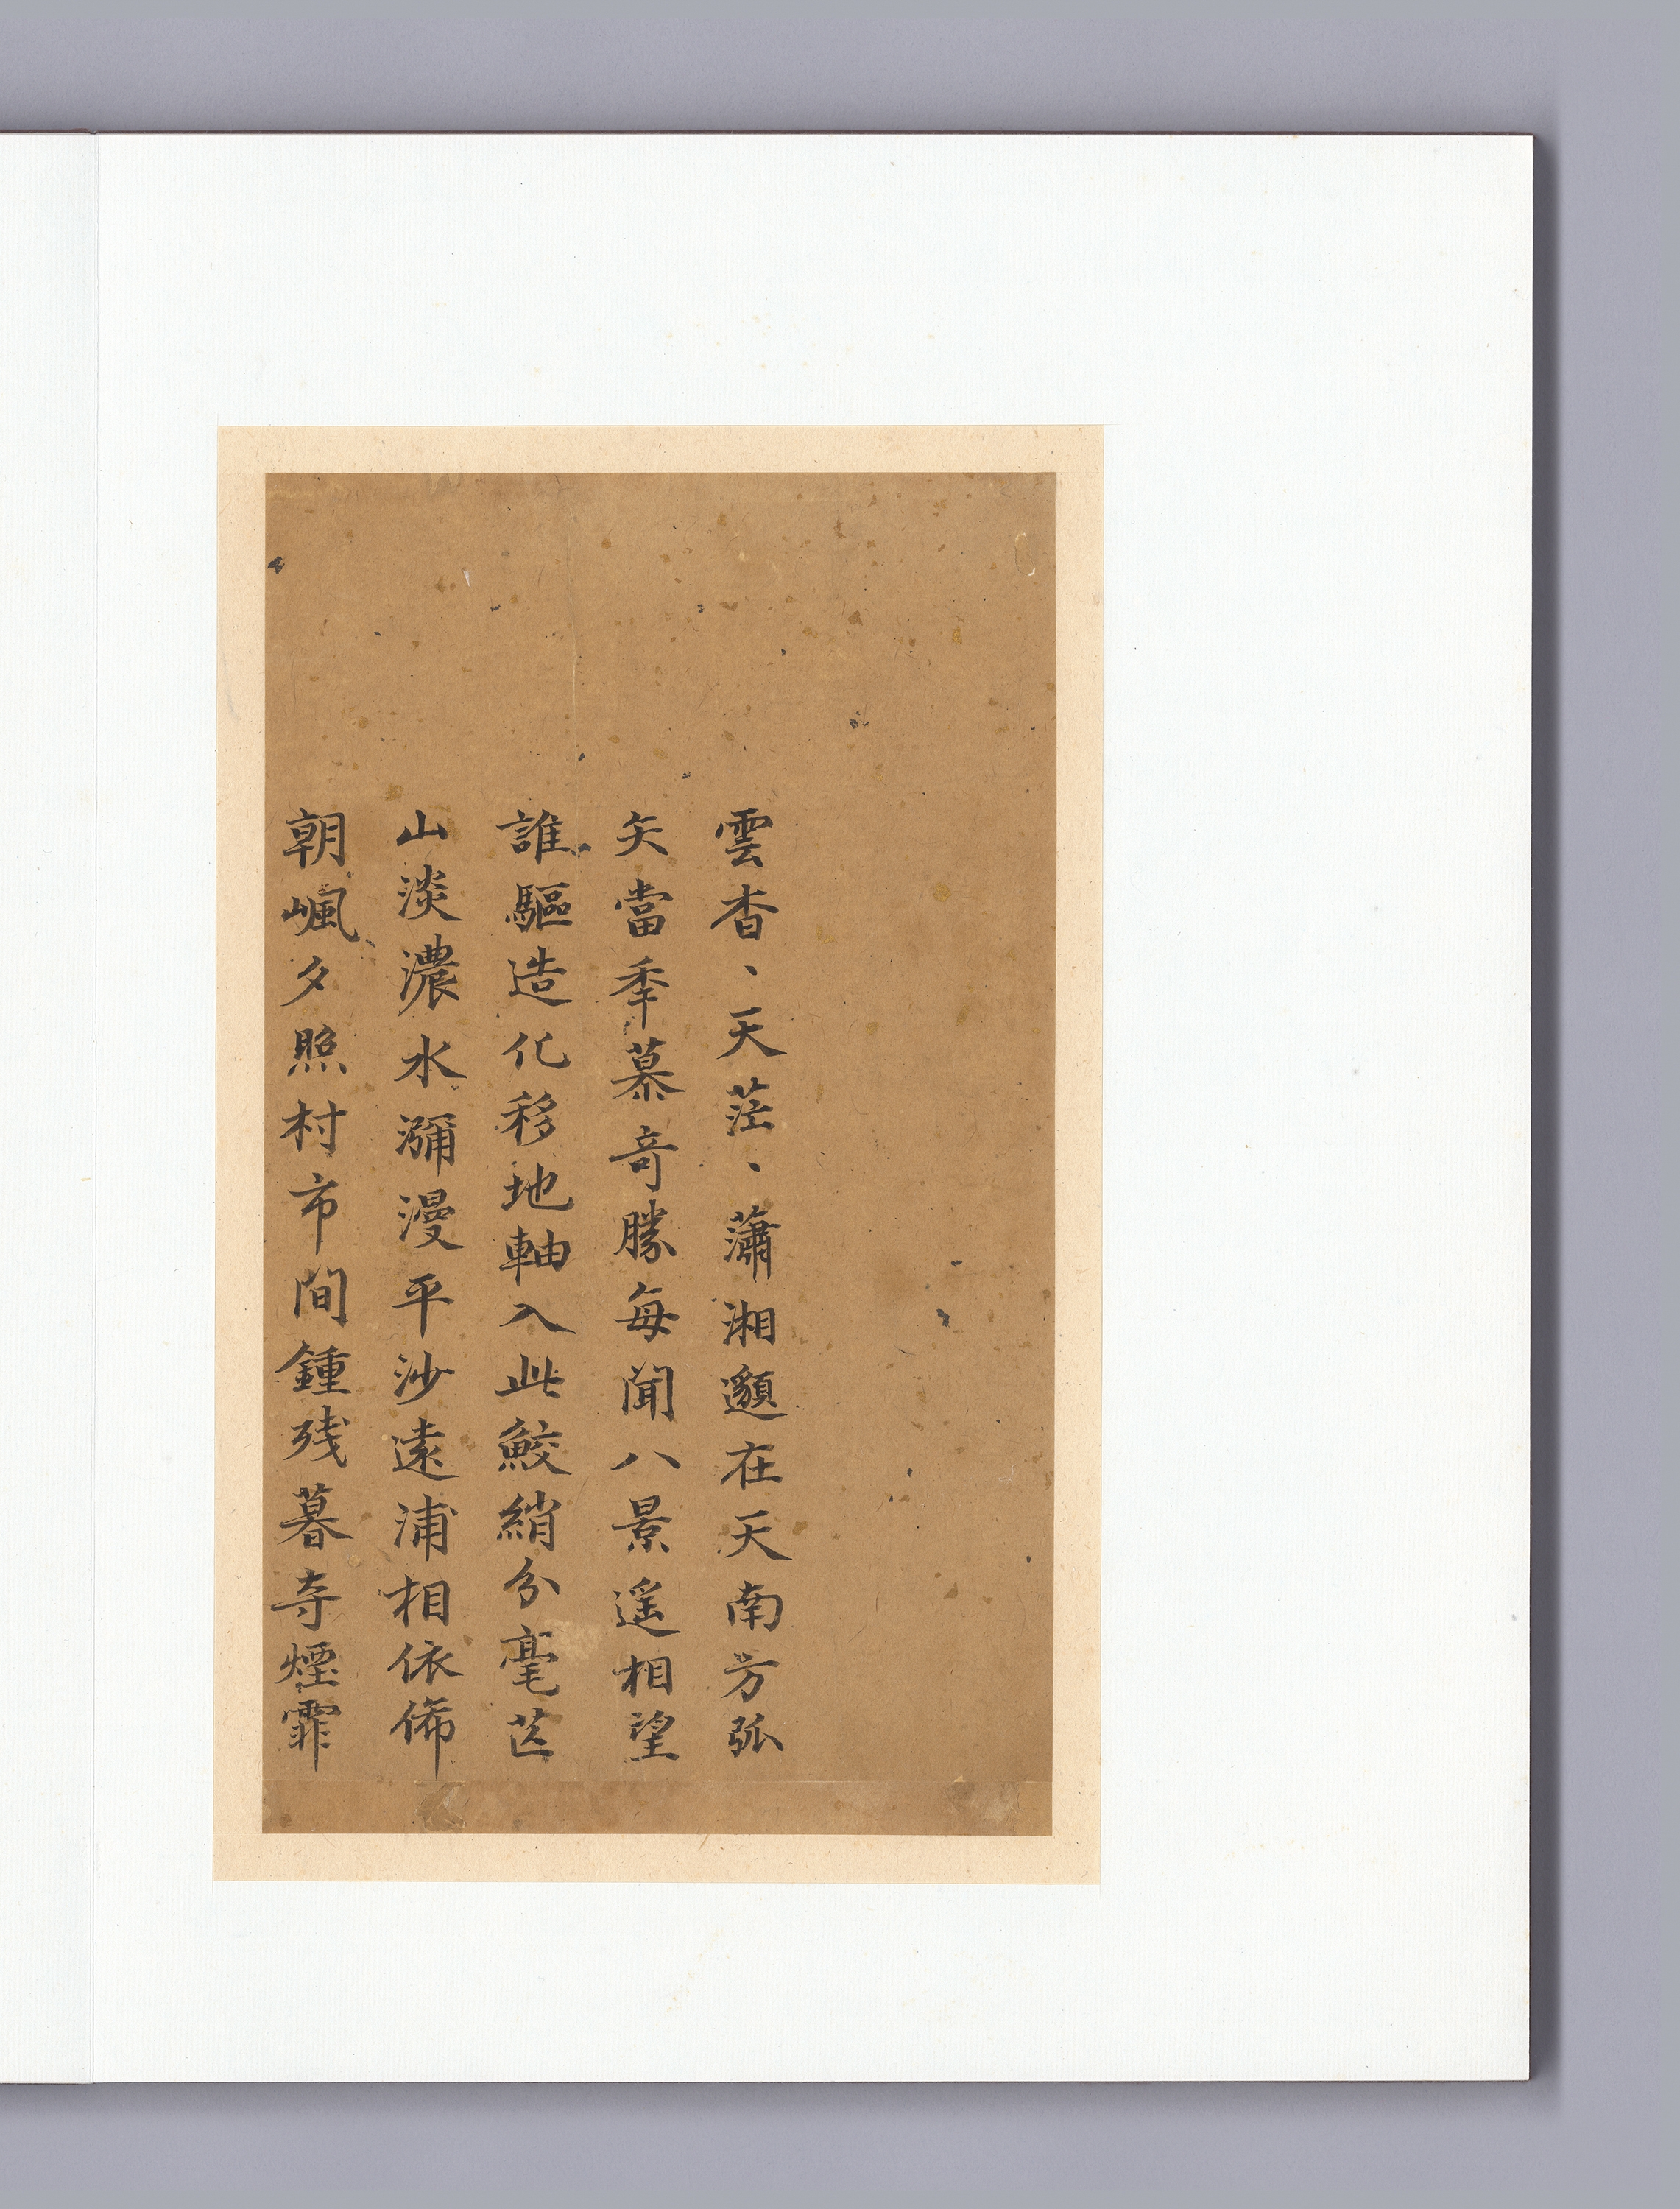 雲杳丶天茫丶瀟湘邈在天南方弧
矢當秊慕奇勝每聞八景遥相望
誰驅造化移地軸入此鮫綃分毫芒
山淡濃水瀰漫平沙遠浦相依俙
朝嵐夕照村市間鍾残暮寺煙霏